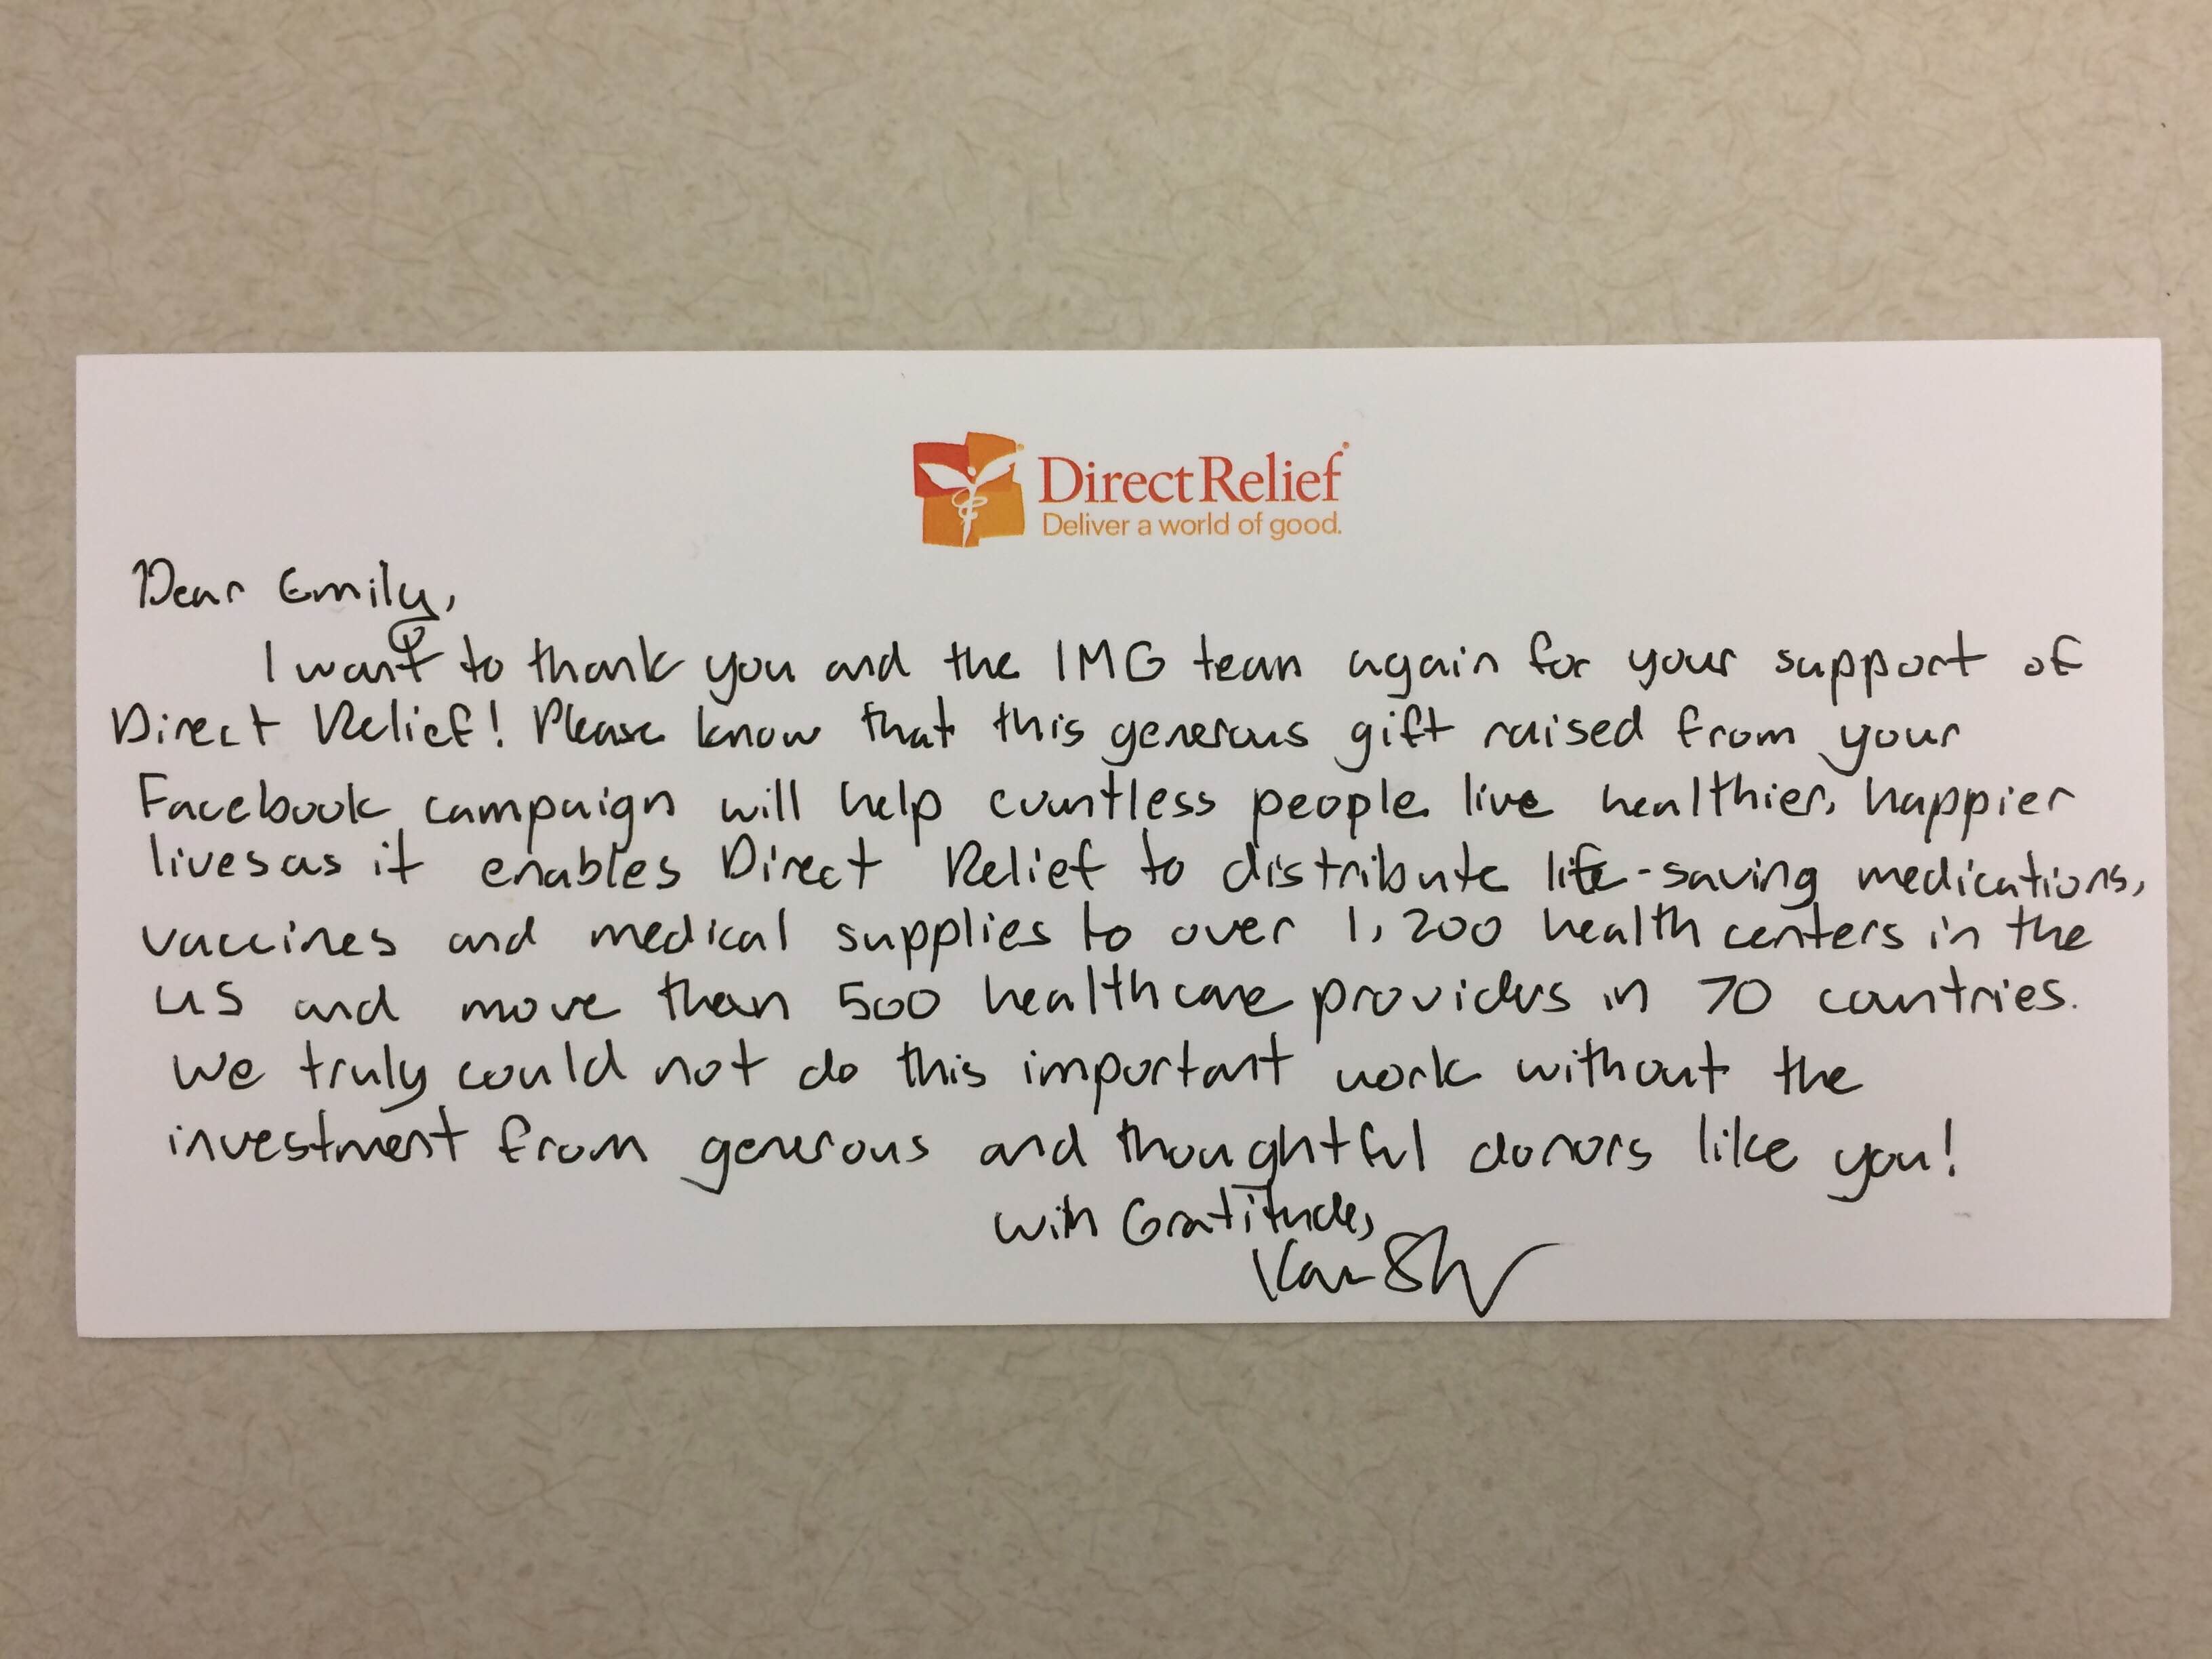 DirectRelief
Deliver a world of good.
Dear Emily,
I want to thank you and the IMG team again for your support of
Direct Relief! Please know that this generous gift raised from your
Facebook campaign will help countless people live healthier, happier
lives as it enables Direct Relief to distribute life-saving medications,
vaccines and medical supplies to over 1,200 health centers in the
US and more than 500 healthcare providers in 70 countries.
We truly could not do this important work without the
investment from generous and thoughtful donors like you!
With Gratitude,